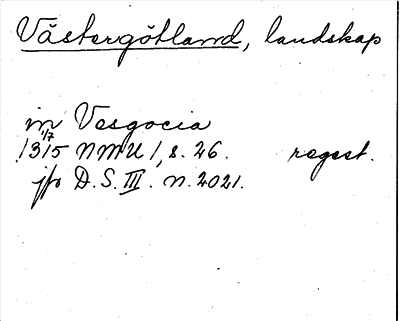 Västergötland, landskap
in Vesgocia
1/7
1315 NMU 1, s. 26. regest.
jfr D.S. III. n. 2021.